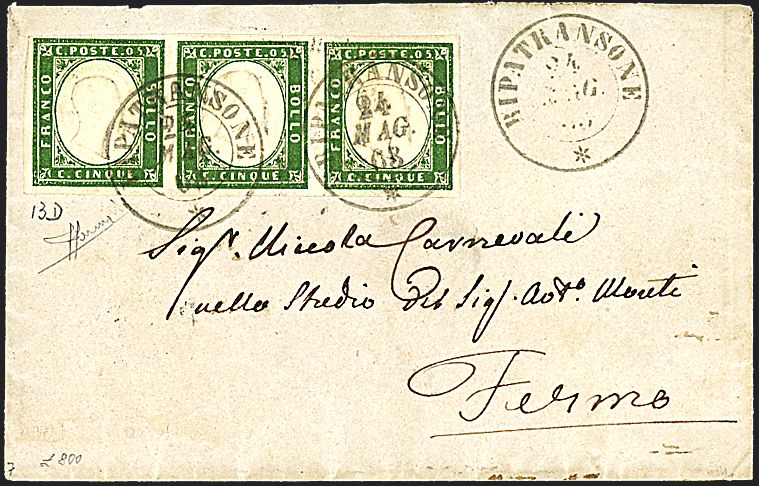 C. POSTE. 05 C. POSTE. 05 C. POSTE. 05
FRANCO BOLLO FRANCO BOLLO FRANCO BOLLO
C. CINQUE C. CINQUE C. CINQUE
RIPATRANSONE
24
MAG.
63
RIPATRANSONE
24
MAG.
13D
Sigr. Niccola Carnevali
nello Studio del Sigr. Avto. Monti
Fermo
800